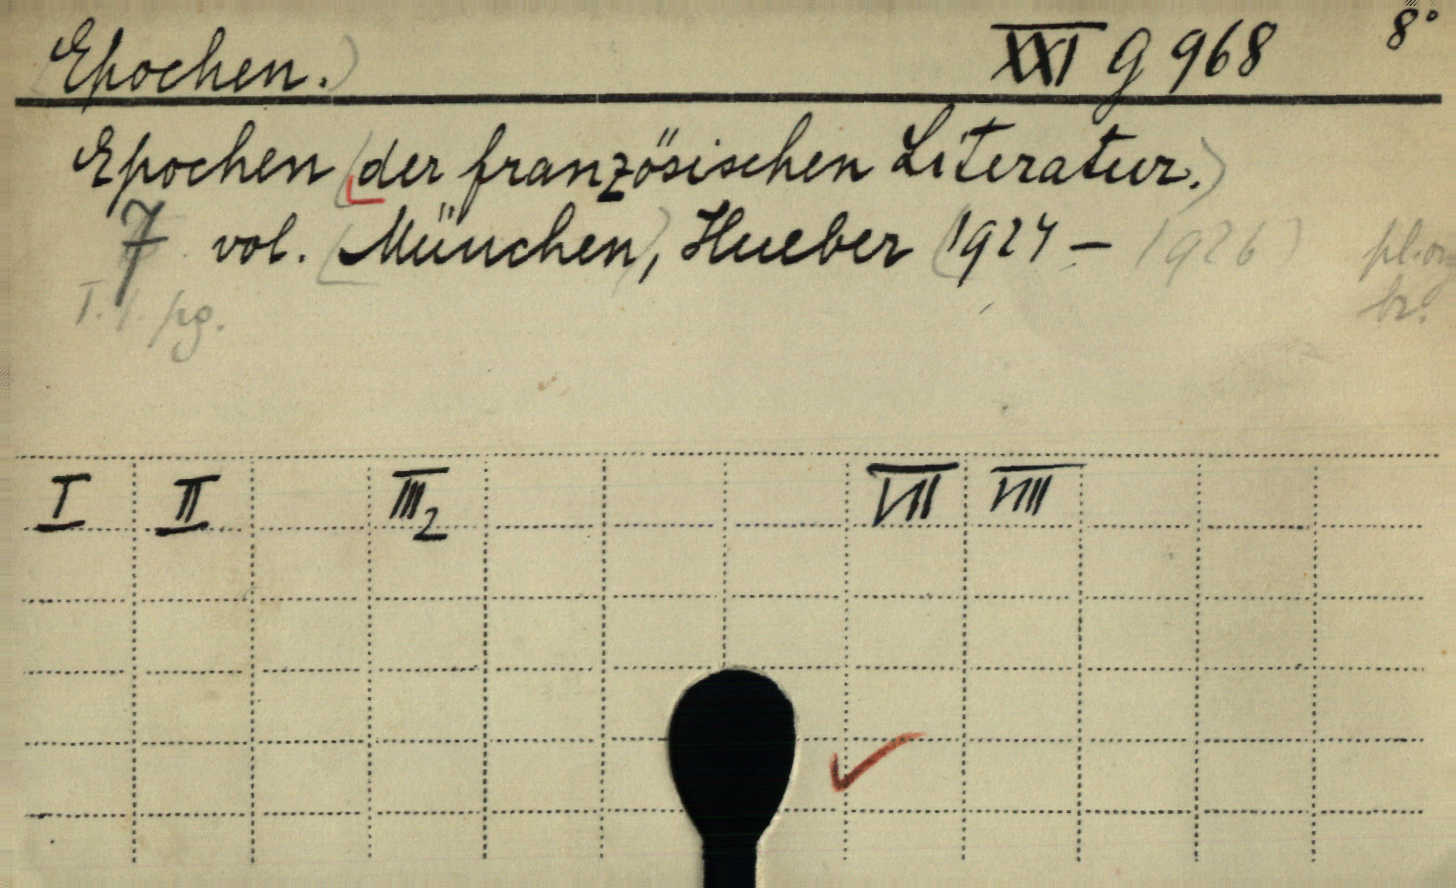 (Epochen.) XXI G 968 8°
Epochen (der französischen Literatur.)
7 vol. (München), Hueber (1924 – 1926)
I. 1. pg. br.
I II III2 VII VIII